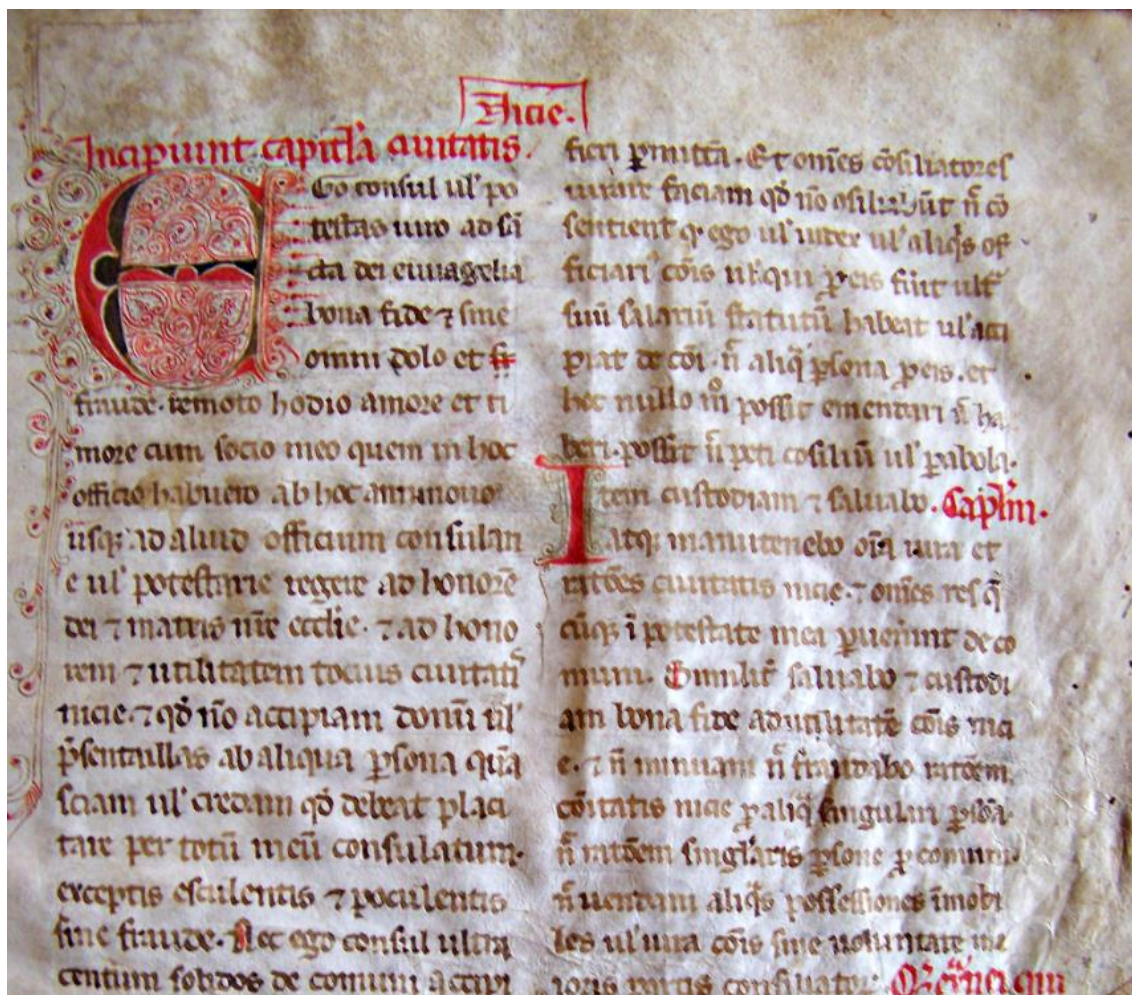 Nicie.
Incipiunt capitl'a ciuitatis.
EGo consul ul' po
testas iuro ad sã
cta dei euuagelia
bona fide ⁊ sine
omni dolo et
fraude. remoto hodio amore et ti
more cum socio meo quem in hoc
officio habuero ab hoc anno nouo
usq; ad aliud officium consulari
e ul' potestarie regere ad honorẽ
dei ⁊ matris nr̃e eccl'ie. ⁊ ad hono
rem ⁊ utilitatem tocius ciuitati᷒
nicie. ⁊ qđ nõ accipiam donũ ul'
p̃sentaillas ab aliqua ꝑsona quã
sciam ul' credam qđ debeat placi
tare per totũ meũ consulatum.
exceptis esculentis ⁊ poculentis
sine fraude. Nec ego consul ultra
centum solidos de comuni accipi
fieri ꝑmittã. Et omẽs cõsiliatores
iurare faciam qđ nõ cõ
sentient ego ul' iudex ul' aliq̃s of
ficiari᷒ cõis ul' qui ꝑ eis ult᷑
suũ salariũ statutũ habeat ul' acci
piat de cõi. ñ aliq̃ ꝑsona ꝑ eis. et
hoc nullo mº possit emendari ñ ha
beri. possit ñ peti cosiliũ ul' ꝑabola.
Item custodiam ⁊ saluabo. Capl'm.
atq; manutenebo oĩa iura et
ratões ciuitatis nicie. ⁊ omẽs res q̃
cũq; ĩ potestate mea ꝑuenerint de co
muni. Similit᷑ saluabo ⁊ custodi
am bona fide ad utilitatẽ cõis nici
e. ⁊ ñ minuam ñ fraudabo ratõem
cõitatis nicie ꝓ aliq̃ singulari ꝑsõa.
ñ ratõem singl'aris ꝑsone ꝓ comuni.
ñ uendam aliq̃s possessiones ĩmobi
les ul' iura cõis sine uoluntate ma
ioris partis consiliator᷑.